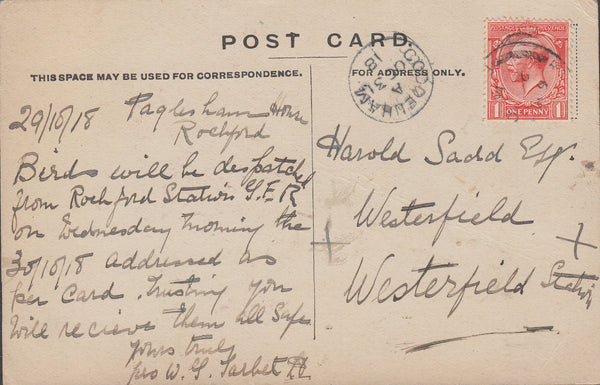 POST CARD.
THIS SPACE MAY BE USED FOR CORRESPONDENCE.
FOR ADDRESS ONLY.
29/10/18 Paglesham House
Rochford
Birds will be despatched
from Rochford Station G.E.R
on Wednesday morning the
30/10/18 addressed as
per Card. Trusting you
will recieve them all Safe
yours truly
pro W. G. Tarbet
Harold Sadd Esq.
Westerfield
Westerfield Station
POSTAGE REVENUE
ONE PENNY
COLDRENHAM
A
18